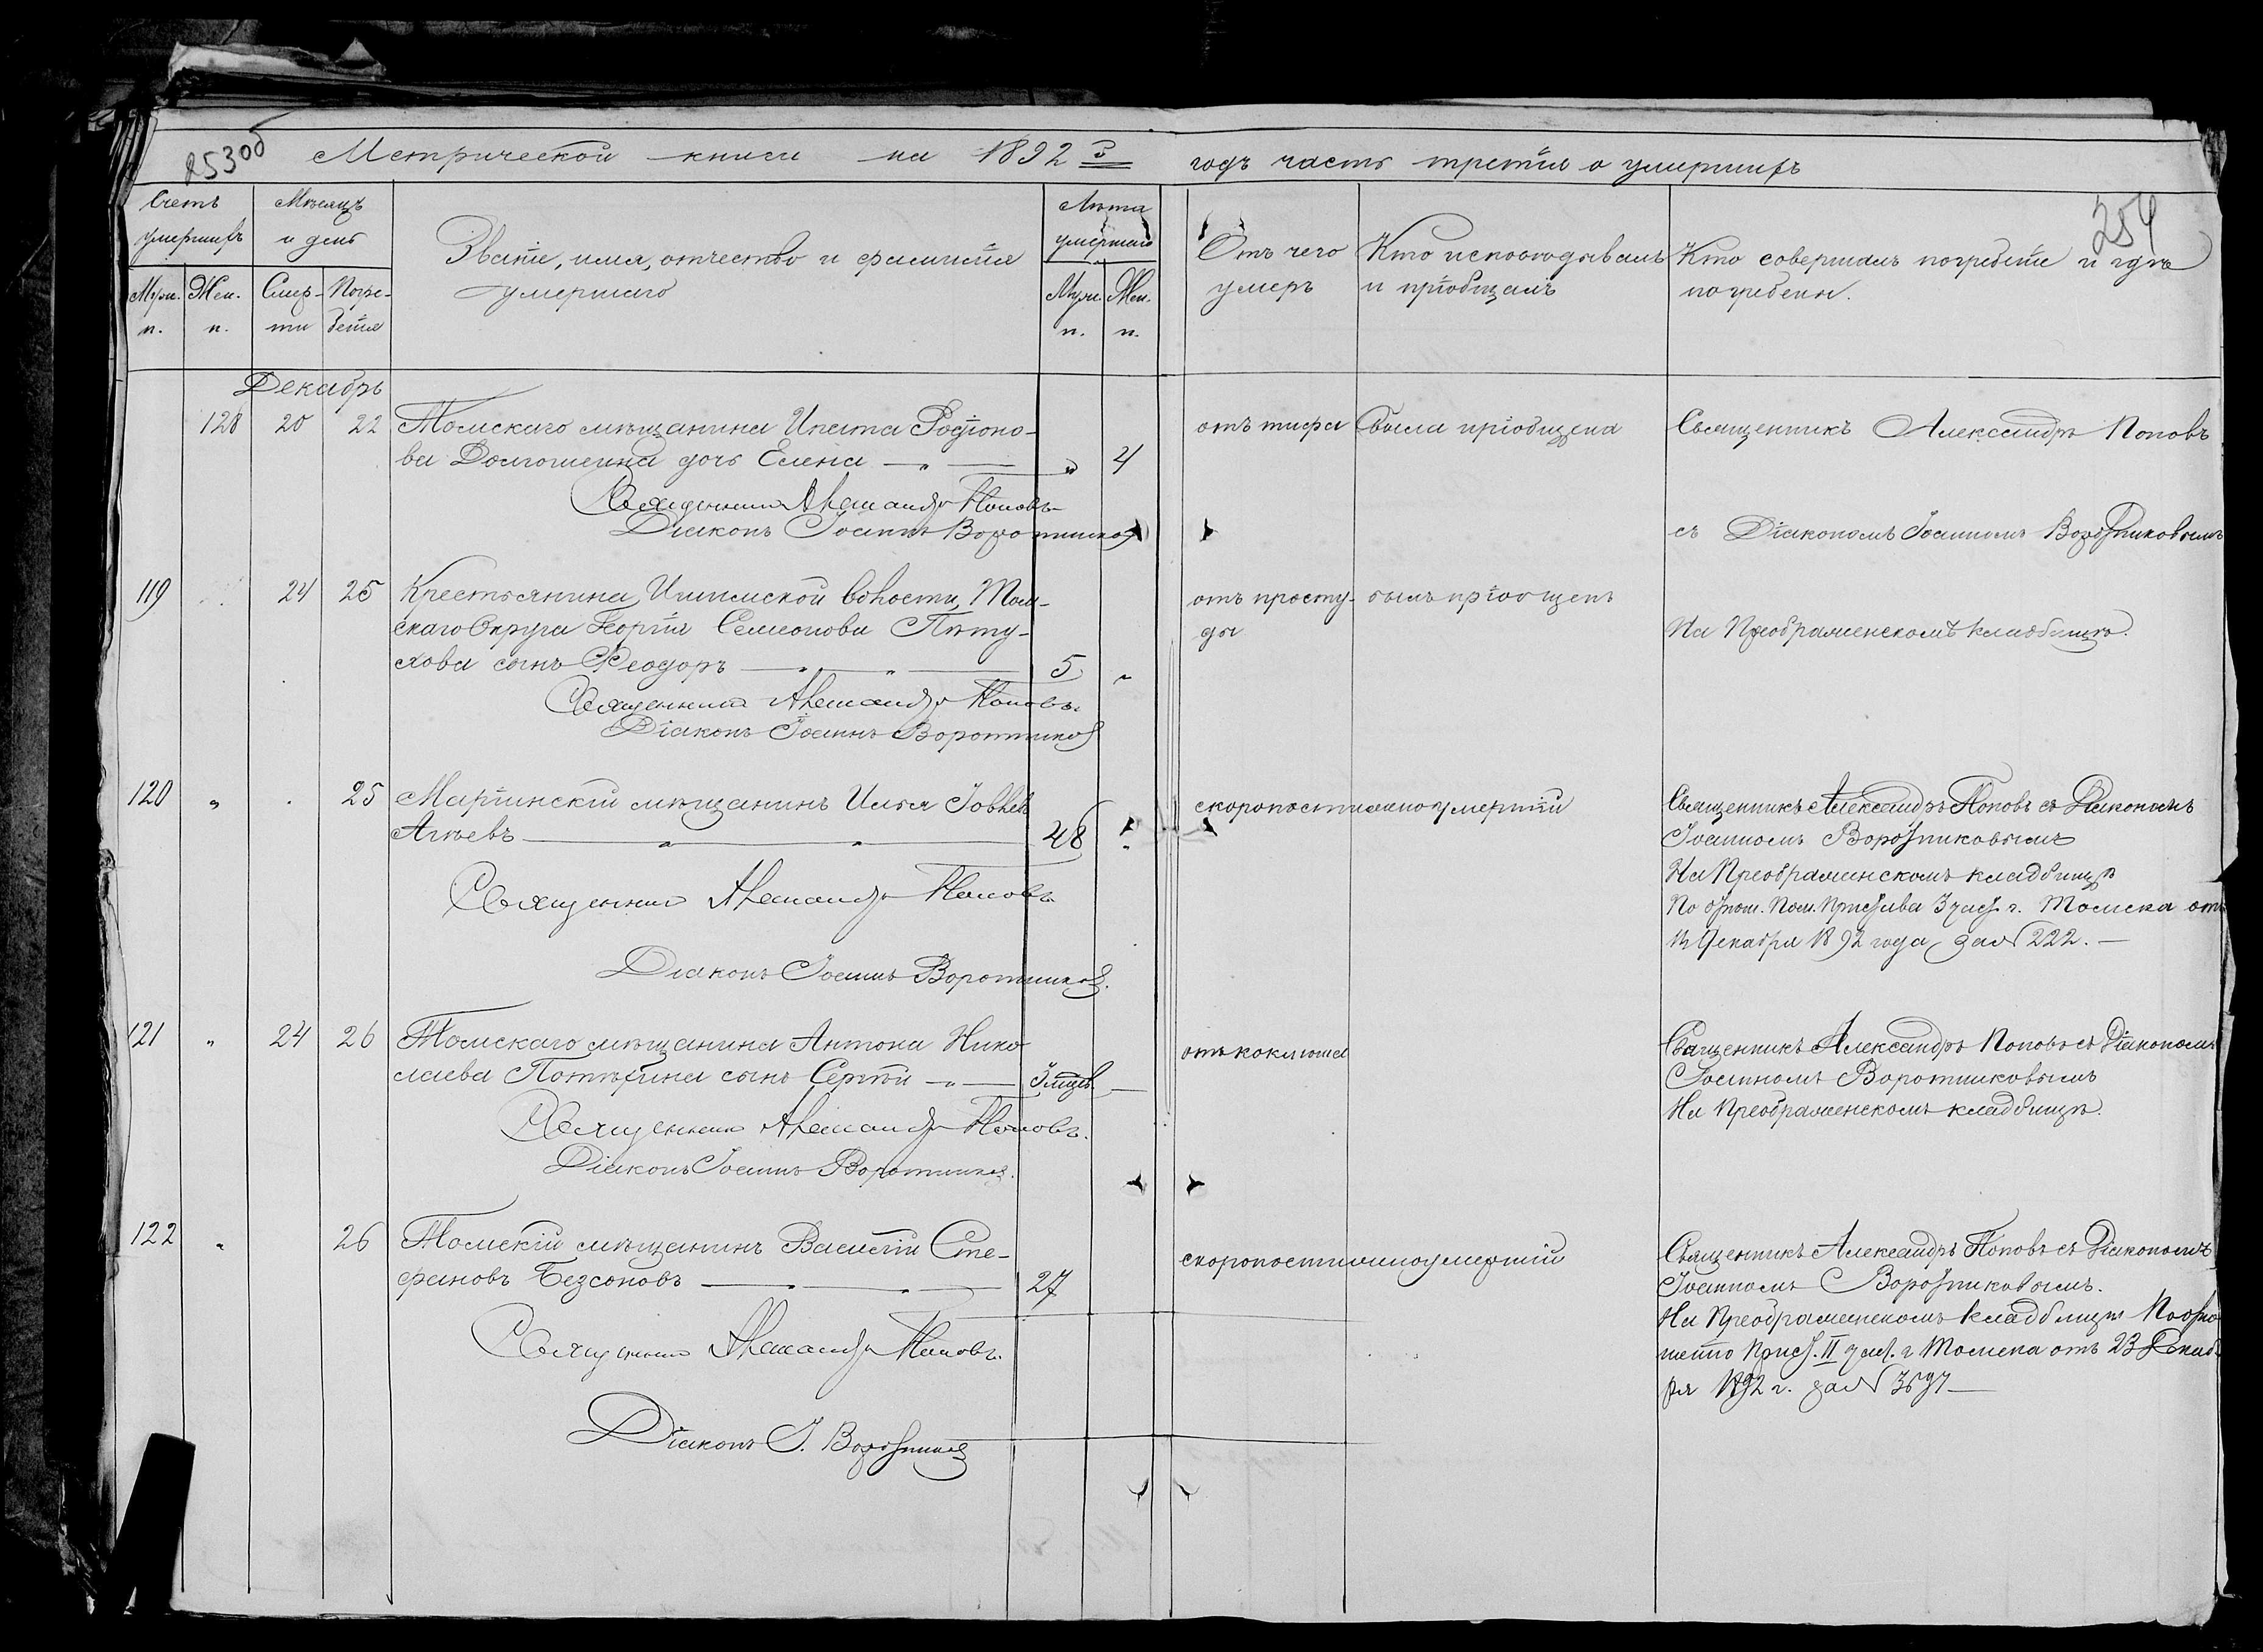 253 об
Метрической книги на 1892 й годъ часть третія о умершихъ
254
Счетъ умершихъ
Муж. п.
Жен. п.
Мѣсяцъ и день
Смер-
ти
Погре-
бенія
Званіе, имя, отчество и фамилія
умершаго
Лѣта умершаго
Муж. п.
Жен. п.
Отъ чего
умеръ
Кто исповѣдывалъ
и пріобщалъ
Кто совершалъ погребеніе и гдѣ
погребены.
Декабрь
128 20 22 Томскаго мѣщанина Ипата Родіоно-
ва Долгошеина дочь Елена — „ — „ 4
отъ тифа
была пріобщена
Священникъ Александръ Поповъ
съ Діакономъ Іоанномъ Воротниковымъ
Священникъ Александръ Поповъ
Діаконъ Іоаннъ Воротниковъ
119 24 25 Крестьянина Ишимской волости, Том-
скаго Округа Георгія Семенова Пѣту-
хова сынъ Ѳеодоръ — „ — „ — 5 „
отъ просту-
ды
былъ пріобщенъ
На Преображенскомъ кладбищѣ.
Священникъ Александръ Поповъ.
Діаконъ Іоаннъ Воротниковъ
120 „ 25 Маріинскій мѣщанинъ Илья Іовлевъ
Агѣевъ — „ — „ — 48 „
скоропостижно умершій
Священникъ Александръ Поповъ съ Діакономъ
Іоанномъ Воротниковымъ
На Преображенскомъ кладбищѣ
По отнош. Пом. Пристава 3 част. г. Томска отъ
Декабря 1892 года за № 222. —
Священникъ Александръ Поповъ.
Діаконъ Іоаннъ Воротниковъ.
121 „ 24 26 Томскаго мѣщанина Антона Нико-
лаева Потѣхина сынъ Сергѣй — „ — 3 мѣс. —
отъ коклюша
Священникъ Александръ Поповъ съ Діакономъ
Іоанномъ Воротниковымъ
На Преображенскомъ кладбищѣ.
Священникъ Александръ Поповъ.
Діаконъ Іоаннъ Воротниковъ.
122 „ 26 Томскій мѣщанинъ Василій Сте-
фановъ Безсоновъ — „ — 27
скоропостижно умершій
Священникъ Александръ Поповъ съ Діакономъ
Іоанномъ Воротниковымъ.
На Преображенскомъ кладбищѣ По отно-
шенію Прист. II част. г Томска отъ 23 Декаб-
ря 1892 г. за № 3697 —
Священникъ Александръ Поповъ.
Діаконъ І. Воротниковъ